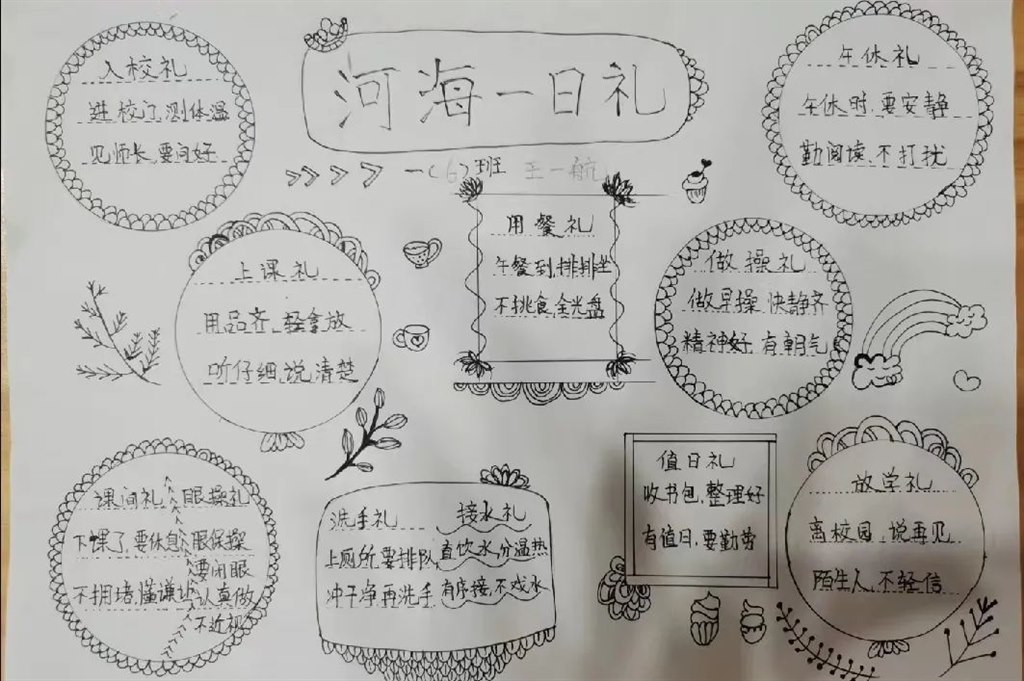 河海一日礼
一(6)班 王一航
入校礼
进校门,测体温
见师长,要问好
午休礼
午休时,要安静
勤阅读,不打扰
上课礼
用品齐,轻拿放
听仔细,说清楚
用餐礼
午餐到,排排坐
不挑食,全光盘
做操礼
做早操,快静齐
精神好,有朝气
课间礼
下课了,要休息
不拥堵,懂谦让
眼操礼
眼保操
要闭眼
认真做
不近视
洗手礼
上厕所,要排队
冲干净,再洗手
接水礼
直饮水,分温热
有序接,不戏水
值日礼
收书包,整理好
有值日,要勤劳
放学礼
离校园,说再见
陌生人,不轻信